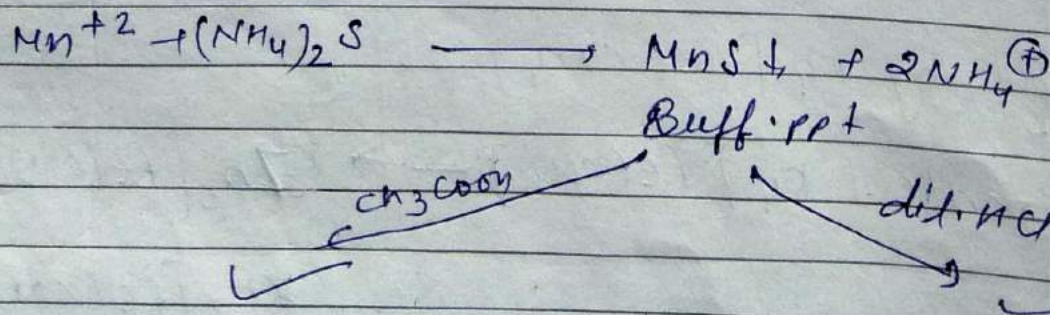 Mn+2 + (NH4)2 S → MnS ↓ + 2NH4⊕
Buff. ppt
CH3COOH dil. HCl
✓ ✓